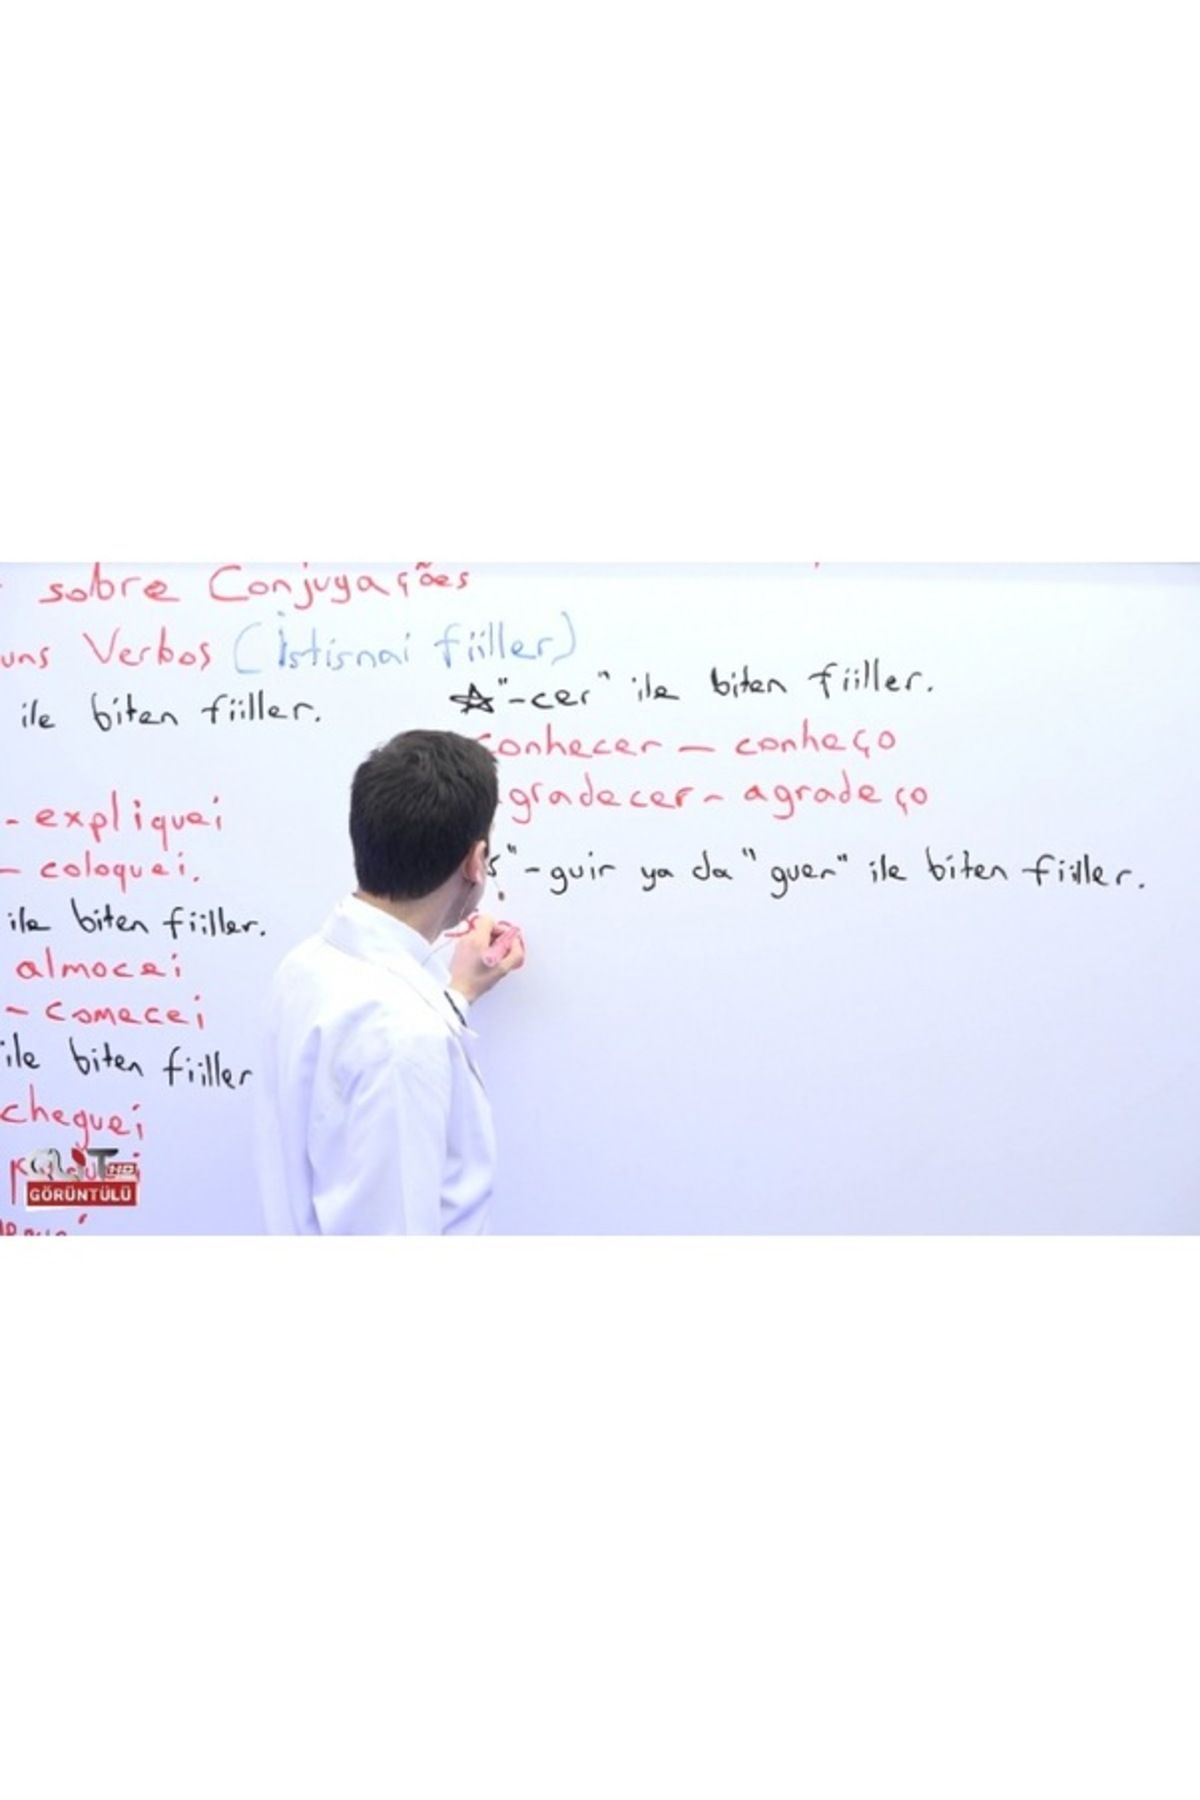 sobre Conjugações
uns Verbos (İstisnai fiiller)
ile biten fiiller.
- expliquei
- coloquei.
ile biten fiiller.
almocei
- comecei
ile biten fiiller
cheguei
GÖRÜNTÜLÜ
"-cer" ile biten fiiller.
conhecer - conheço
gradecer - agradeço
"-guir ya da "guer" ile biten fiiller.